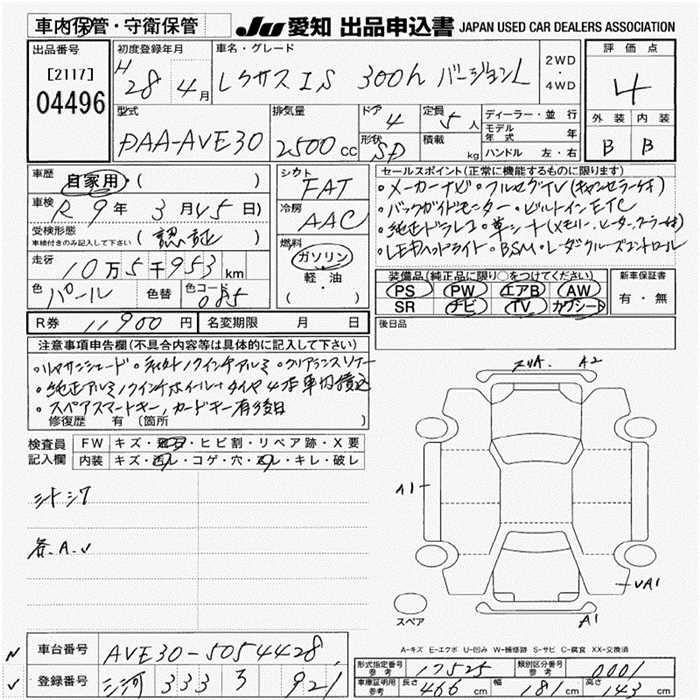 車内保管・守衛保管
JU 愛知 出品申込書 JAPAN USED CAR DEALERS ASSOCIATION
出品番号
[2117]
04496
初度登録年月
H 28年 4月
車名・グレード
レクサス IS 300h バージョンL
2WD
・
4WD
評価点
4
外装 内装
B B
型式
DAA-AVE30
排気量
2500cc
ドア
4
形状
SD
定員
5人
積載
kg
ディーラー・並行
モデル年式 年
ハンドル 左・右
車歴
自家用・( )
車検
R 9年 3月 45日)
受検形態
車検付きのみ記入して下さい
(認証)
走行
10万5千953km
色
パール
色替
色コード
085
シフト
FAT
冷房
AAC
燃料
ガソリン
軽・油
( )
セールスポイント(正常に機能するものに限ります)
・メーカーナビ・フルセグTV(キャンセラー付)
・バックガイドモニター・ビルトインETC
・純正ドラレコ・革シート(メモリー、ヒーター、クーラー付)
・LEDヘッドライト・BSM・レーダークルーズコントロール
装備品(純正品に限り○をつけてください)
PS PW エアB AW
SR ナビ TV カワシート
新車保証書
有・無
R券 11900円
名変期限 月 日
後日品
注意事項申告欄(不具合内容等は具体的に記入して下さい)
・リヤサンシェード・社外ノクインチアルミ・クリアランスソナー
・純正アルミノクインチホイール+タイヤ4本車内積込
・スペアスマートキー、カードキー有後日
修復歴 有(箇所 )
検査員
記入欄
FW キズ・飛石・ヒビ割・リペア跡・X要
内装 キズ・汚レ・コゲ・穴・スレ・キレ・破レ
シートシワ
各.A.U
A2
A1
UA1
A1
スペア
A-キズ E-エクボ U-凹み W-補修跡 S-サビ C-腐食 XX-交換済
車台番号
AVE30-5054428
登録番号
三河 333 ヲ 921
形式指定番号
参考
17525
類別区分番号
参考
0001
車庫証明用
参考
長さ 466cm 幅 181cm 高さ 143cm